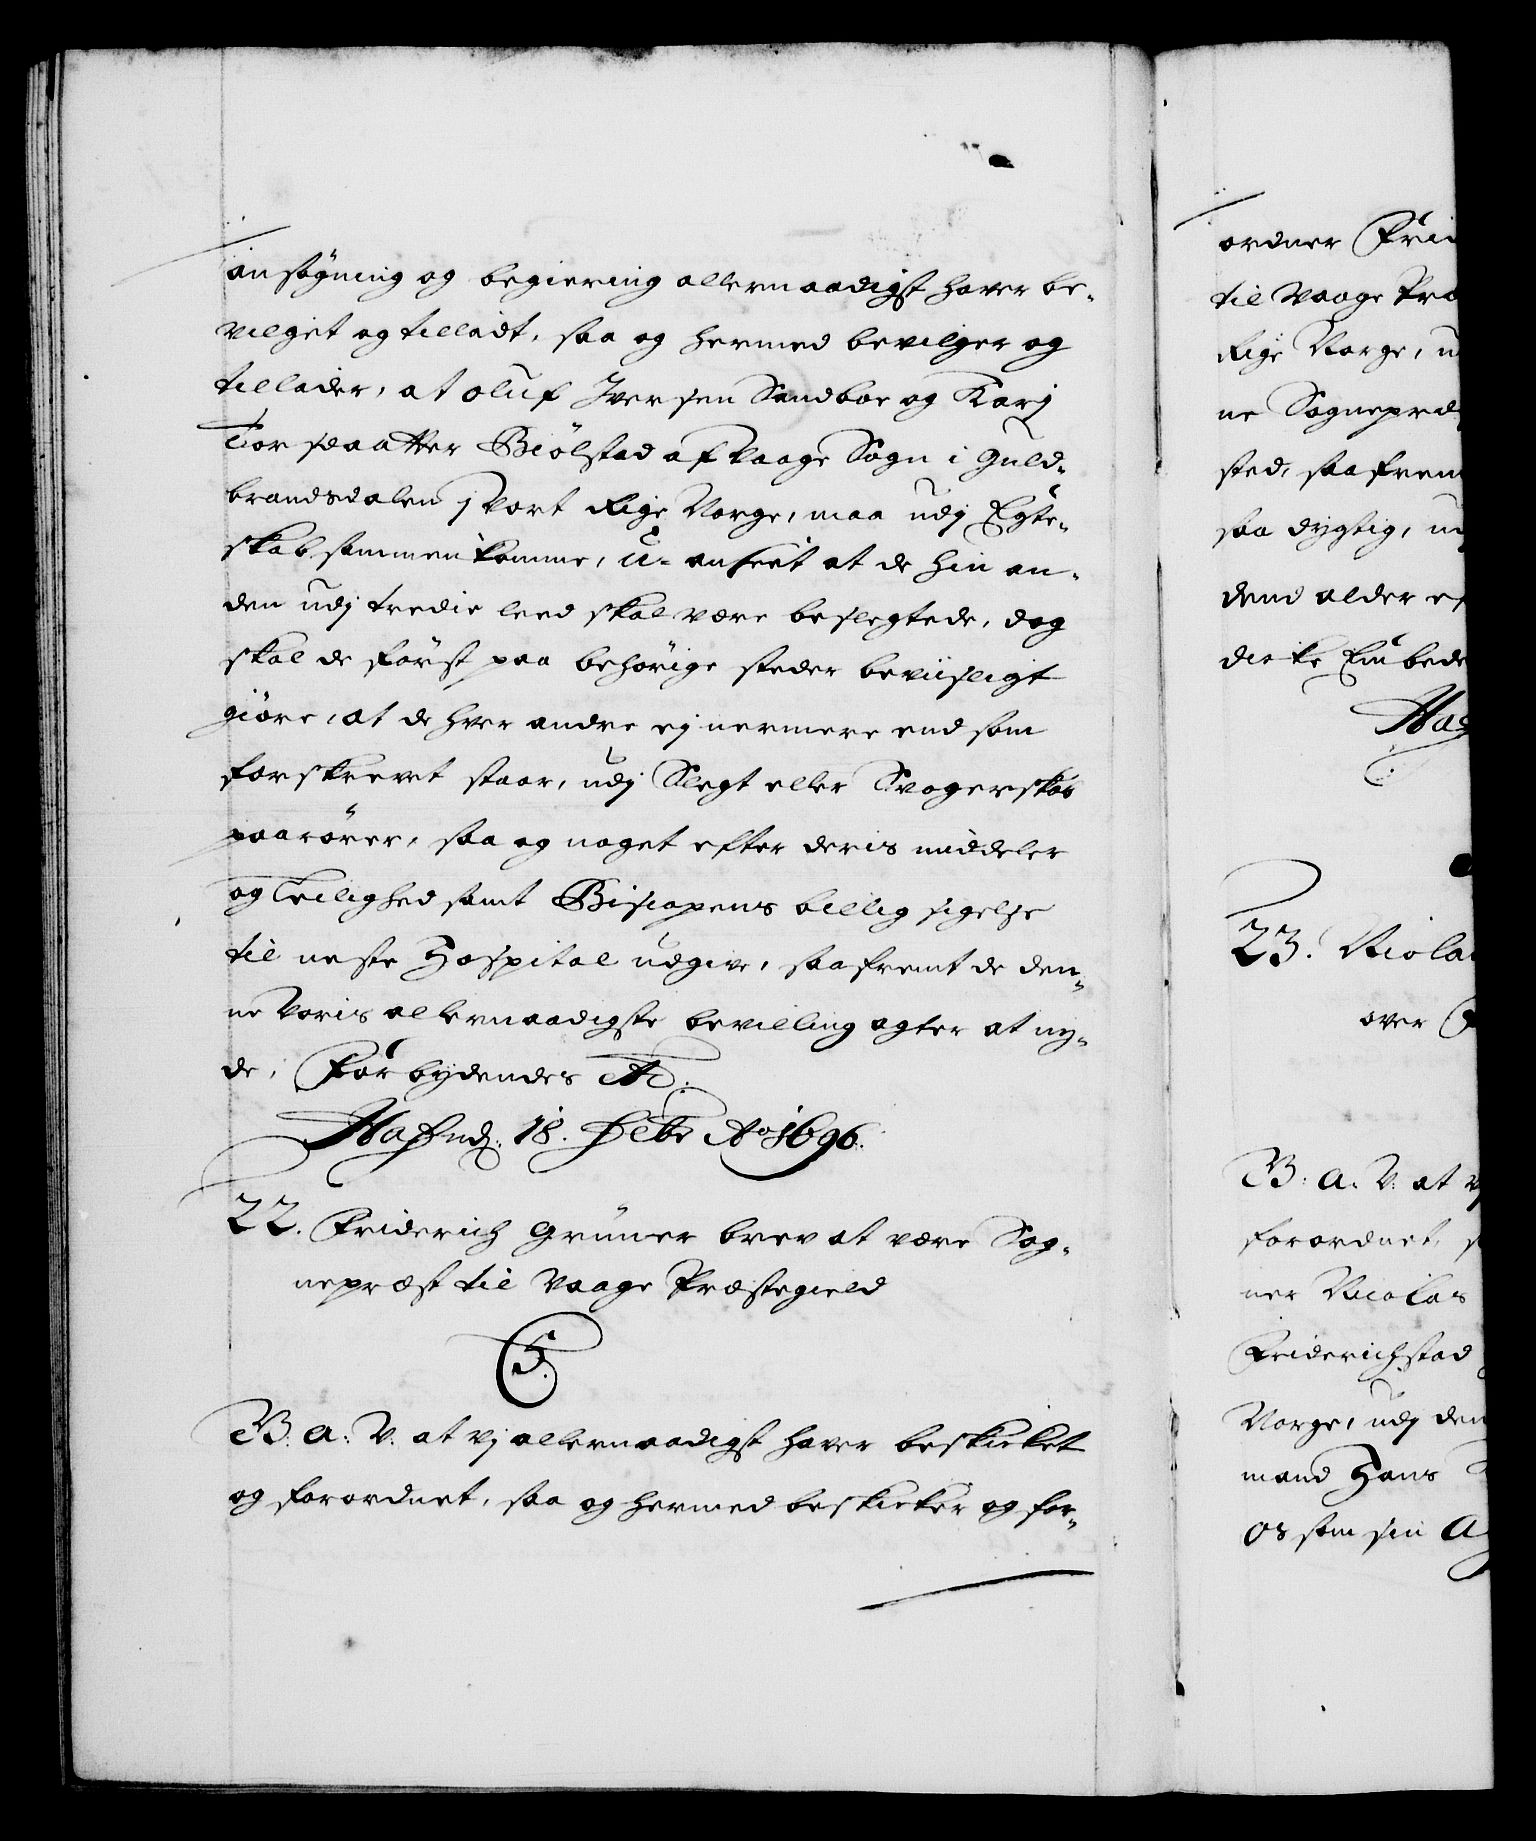 ansøgning og begiering allernaadigst hafver be-
vilget og tilladt, saa og hermed bevilger og
tillader, at Oluf Iversen Sandboe og Karj
Torsdaatter Biölstad af Vaage Sogn i Guld-
brandsdalen j Vort Rige Norge, maa udj Egte-
skab sammenkomme, u-anseet at de hin an-
den udj tredie leed skal være beslegtede, dog
skal de först paa behörige steder beviisligt
giöre, at de hver andre ej nermere end som
forskrevet staar, udj Slegt eller Svogerskab
paarörer, saa og noget efter deris middeler
og leilighed samt Biscopens billig sigelse
til neste Hospital udgive, saafremt de den-
ne Voris allernaadigste bevilling agter at ny-
de, Forbydendes etc.
Hafnd. 18. Febr Ao 1696.
22. Friderich Grüner brev at være Sog-
nepræst til Vaage Præstegield
C5.
B. A. V. at vj allernaadigst hafver beskicket
og forordnet, saa og hermed beskicker og for-
ordner Frid
til Vaage Præ
Rige Norge, u
ne Sognepræ
sted, saafrem
saa dygtig, u
dend alder ef
diske Embede
Haf
23. Nicola
over
B. A. V. at v
forordnet, s
ner Nicolas
Friderichstad
Norge, udj den
mand Hans
os som sin A